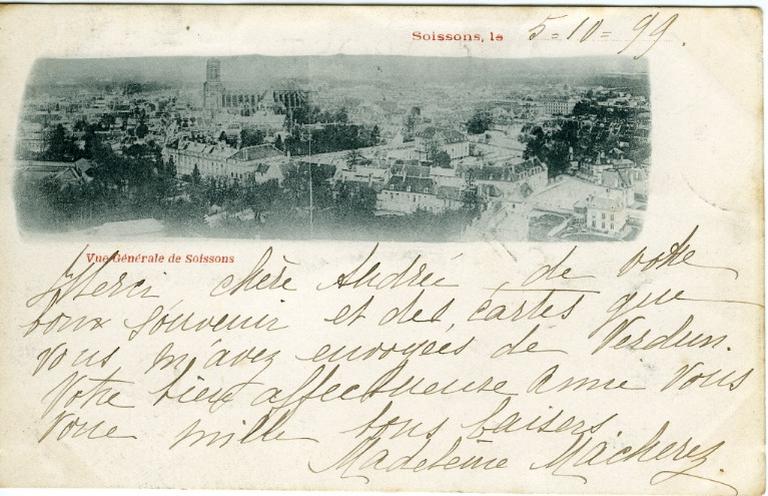 Soissons, le 5=10=99.
Vue Générale de Soissons
Merci chère Andrée de votre
bon souvenir et des cartes que
vous m'avez envoyées de Verdun.
Votre bien affectueuse amie vous
voue mille bons baisers.
Madeleine Macherez